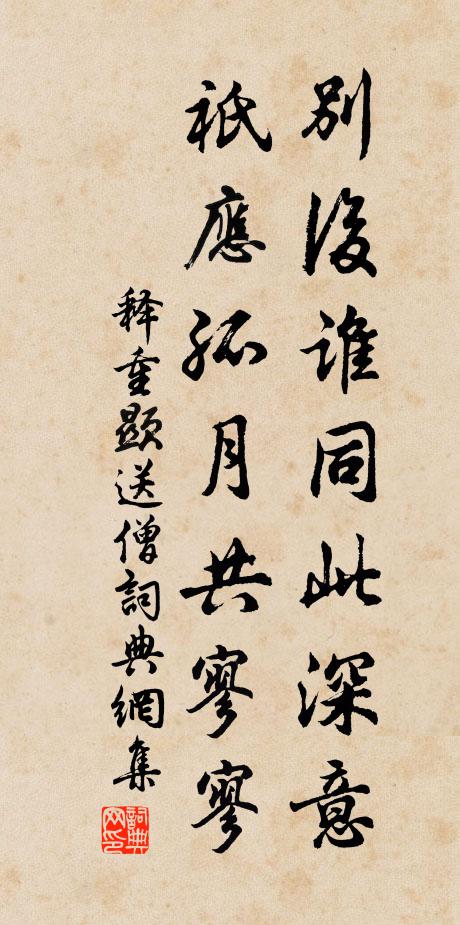 別後誰同此深意
祇應孤月共寥寥
释重顯送僧詞典網集
詞典網印